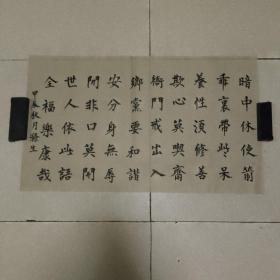 暗中休使箭
乖裏帶些呆
養性須修善
欺心莫喫齋
衙門戒出入
鄉黨要和諧
安分身無辱
閒非口莫開
世人依此語
全福樂康哉
甲辰秋月生